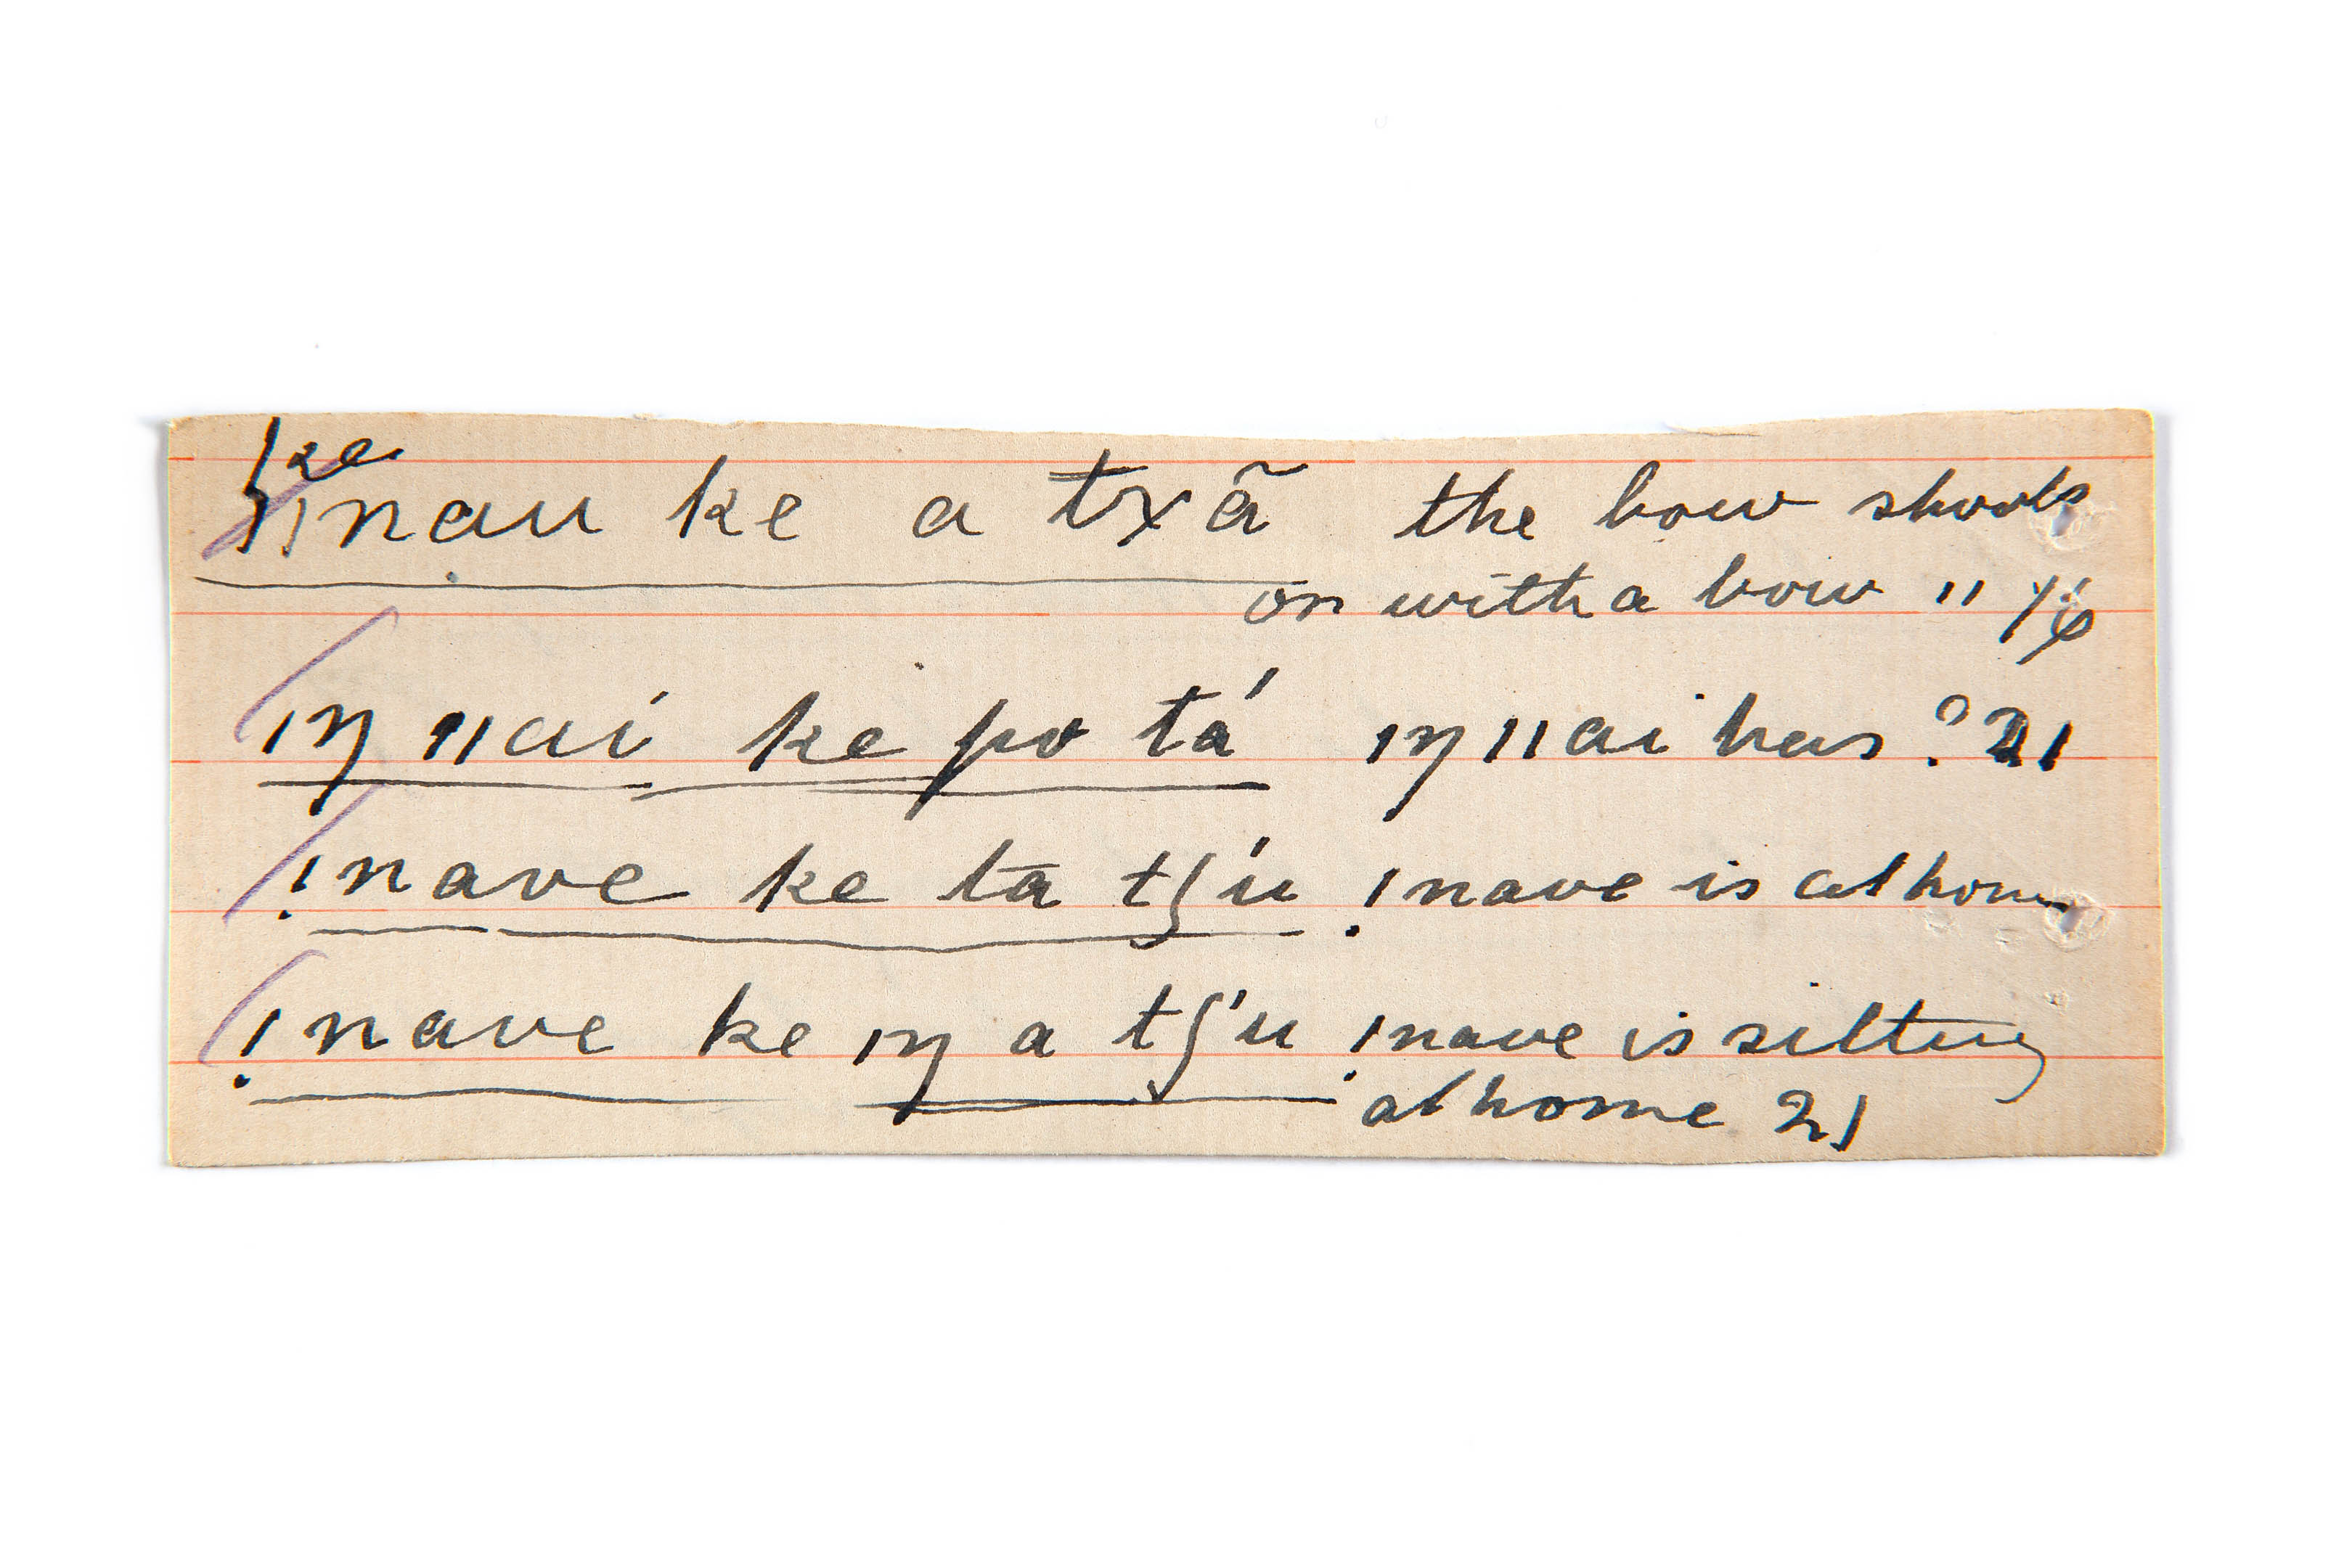 ke
ınau ke a txã the bow shoots
or with a bow "
ıŋ ıı ai ke po tá ıŋ ıı ai has ? 21
! nave ke ta tʃ'u ! nave is at home
! nave ke ıŋ a tʃ'u ! nave is sitting
at home 21